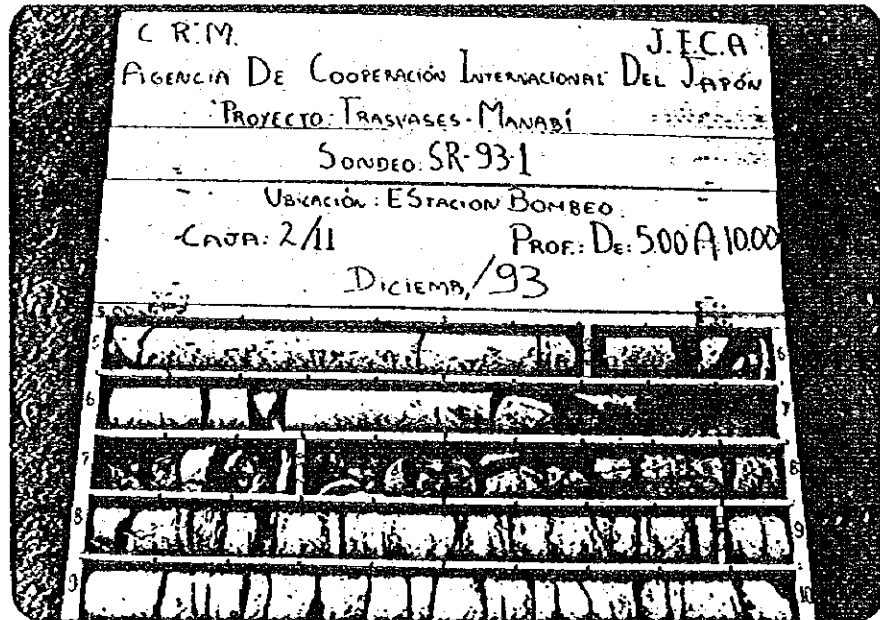 C R.M.
J.I.C.A
AGENCIA DE COOPERACIÓN INTERNACIONAL DEL JAPÓN
PROYECTO: TRASVASES - MANABÍ
SONDEO: SR-93-1
UBICACIÓN: ESTACION BOMBEO.
CAJA: 2/11
PROF.: DE: 5.00 A 10.00
DICIEMB, /93
5 6
6 7
7 8
8 9
9 10